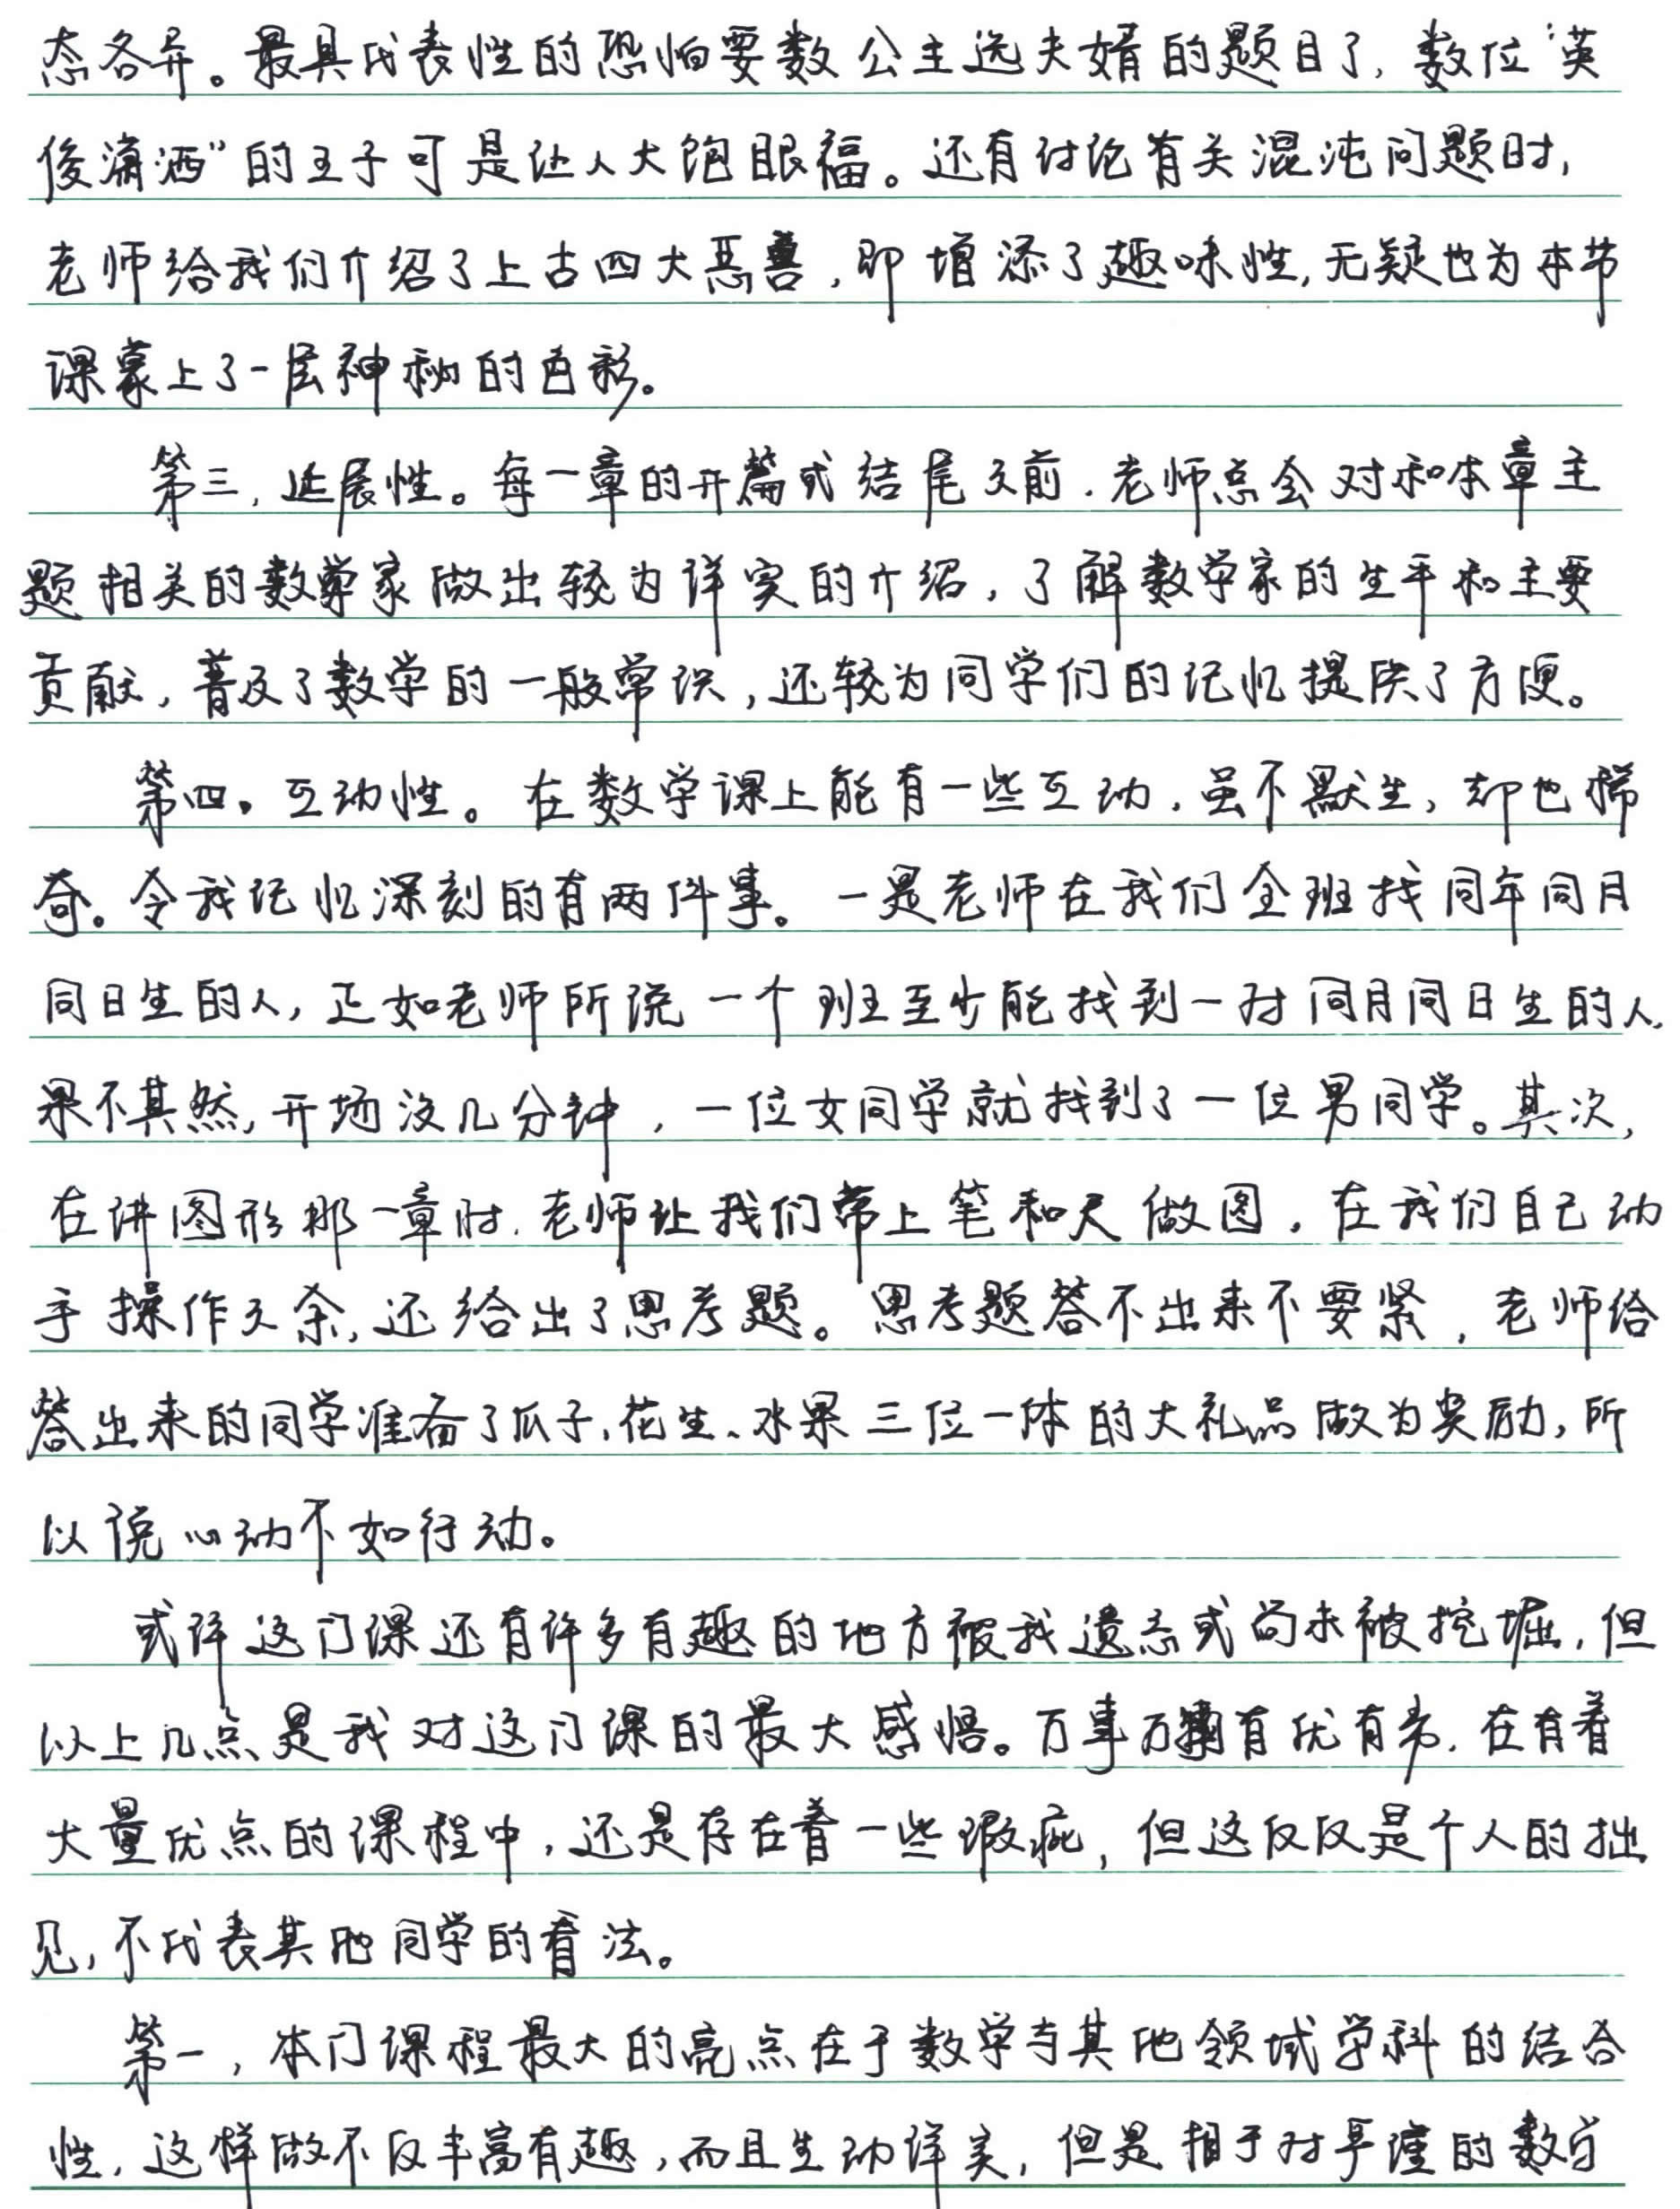 态各异。最具代表性的恐怕要数公主选夫婿的题目了，数位“英
俊潇洒”的王子可是让人大饱眼福。还有讨论有关混沌问题时，
老师给我们介绍了上古四大恶兽，即增添了趣味性，无疑也为本节
课蒙上了一层神秘的色彩。
第三，延展性。每一章的开篇或结尾之前，老师总会对和本章主
题相关的数学家做出较为详实的介绍，了解数学家的生平和主要
贡献，普及了数学的一般常识，还较为同学们的记忆提供了方便。
第四。互动性。在数学课上能有一些互动，虽不默生，却也稀
奇。令我记忆深刻的有两件事。一是老师在我们全班找同年同月
同日生的人，正如老师所说一个班至少能找到一对同月同日生的人，
果不其然，开场没几分钟，一位女同学就找到了一位男同学。其次，
在讲图形那一章时，老师让我们带上笔和尺做图，在我们自己动
手操作之余，还给出了思考题。思考题答不出来不要紧，老师给
答出来的同学准备了瓜子、花生、水果三位一体的大礼品做为奖励，所
以说心动不如行动。
或许这门课还有许多有趣的地方被我遗忘或尚未被挖掘，但
以上几点是我对这门课的最大感悟。万事万物有优有劣，在有着
大量优点的课程中，还是存在着一些瑕疵，但这仅仅是个人的拙
见，不代表其他同学的看法。
第一，本门课程最大的亮点在于数学与其他领域学科的结合
性，这样做不仅丰富有趣，而且生动详实，但是相于对严谨的数学